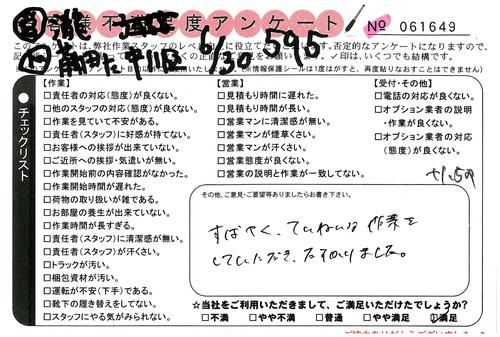 様不満足度アンケート
No 061649
6/30 595
(※情報保護シールは1度はがすと、再度貼りなおすことはできません)
チェックリスト
【作業】
□責任者の対応(態度)が良くない。
□他のスタッフの対応(態度)が良くない。
□作業を見ていて不安がある。
□責任者(スタッフ)に好感が持てない。
□お客様への挨拶が出来ていない。
□ご近所への挨拶・気遣いが無い。
□作業開始前の内容確認がなかった。
□作業開始時間が遅れた。
□荷物の取り扱いが雑である。
□お部屋の養生が出来ていない。
□作業時間が長すぎる。
□責任者(スタッフ)に清潔感が無い。
□責任者(スタッフ)が汗くさい。
□トラックが汚い。
□梱包資材が汚い。
□運転が不安(下手)である。
□靴下の履き替えをしてない。
□スタッフにやる気がみられない。
【営業】
□見積もり時間に遅れた。
□見積もり時間が長い。
□営業マンに清潔感が無い。
□営業マンが煙草くさい。
□営業マンが汗くさい。
□営業態度が良くない。
□営業の説明と作業が一致してない。
【受付・その他】
□電話の対応が良くない。
□オプション業者の説明
・作業が良くない。
□オプション業者の対応
(態度)が良くない。
その他、ご意見・ご要望等ありましたらお書き下さい。
すばやく、ていねいな作業を
していただき、たすかりました。
☆当社をご利用いただきまして、ご満足いただけたでしょうか?
□不満 □やや不満 □普通 □やや満足 ☑満足